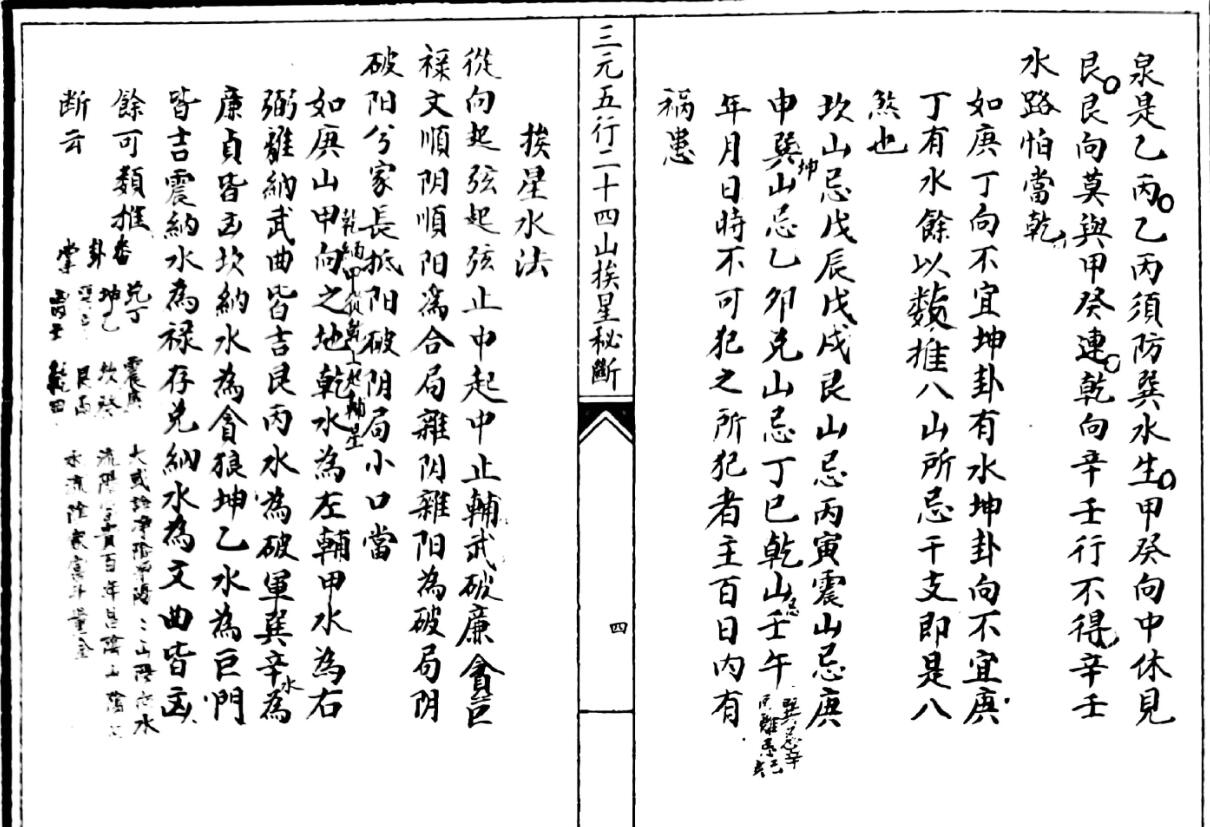 泉是乙丙乙丙須防巽水生甲癸向中休見
艮艮向莫與甲癸連乾向辛壬行不得辛壬
水路怕當乾
如庚丁向不宜坤卦有水坤卦向不宜庚
丁有水餘以類推八山所忌干支即是八
煞也
坎山忌戊辰戊戌艮山忌丙寅震山忌庚
申巽坤山忌乙卯兑山忌丁巳乾山忌壬午
年月日時不可犯之所犯者主百日內有
禍患
三元五行二十四山挨星秘斷
四
挨星水法
從向起弦起弦止中起中止輔武破廉貪巨
祿文順阴順阳為合局雜阴雜阳為破局阴
破阳兮家長抵阳破阴局小口當
如庚山甲向之地乾水為左輔甲水為右
乾納甲從乾上起輔星
弼離納武曲皆吉艮丙水為破軍巽辛水為
廉貞皆凶坎納水為貪狼坤乙水為巨門
皆吉震納水為禄存兑納水為文曲皆凶
餘可類推
断云